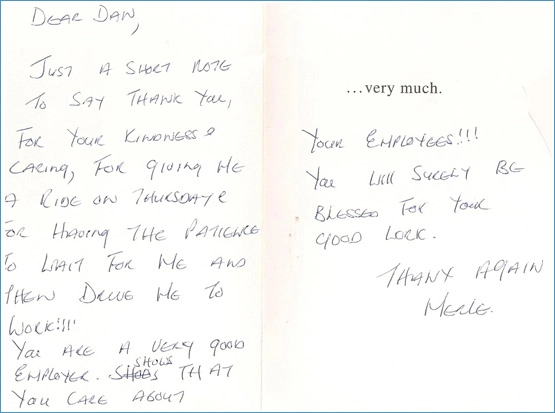 DEAR DAN,
JUST A SHORT NOTE
TO SAY THANK YOU,
FOR YOUR KINDNESS &
CARING, FOR GIVING ME
A RIDE ON THURSDAY &
FOR HAVING THE PATIENCE
TO WAIT FOR ME AND
THEN DRIVE ME TO
WORK!!!!
YOU ARE A VERY GOOD
SHOWS
EMPLOYER. THAT
YOU CARE ABOUT
...very much.
YOUR EMPLOYEES!!!
YOU WILL SURELY BE
BLESSED FOR YOUR
GOOD WORK.
THANX AGAIN
MERLE.